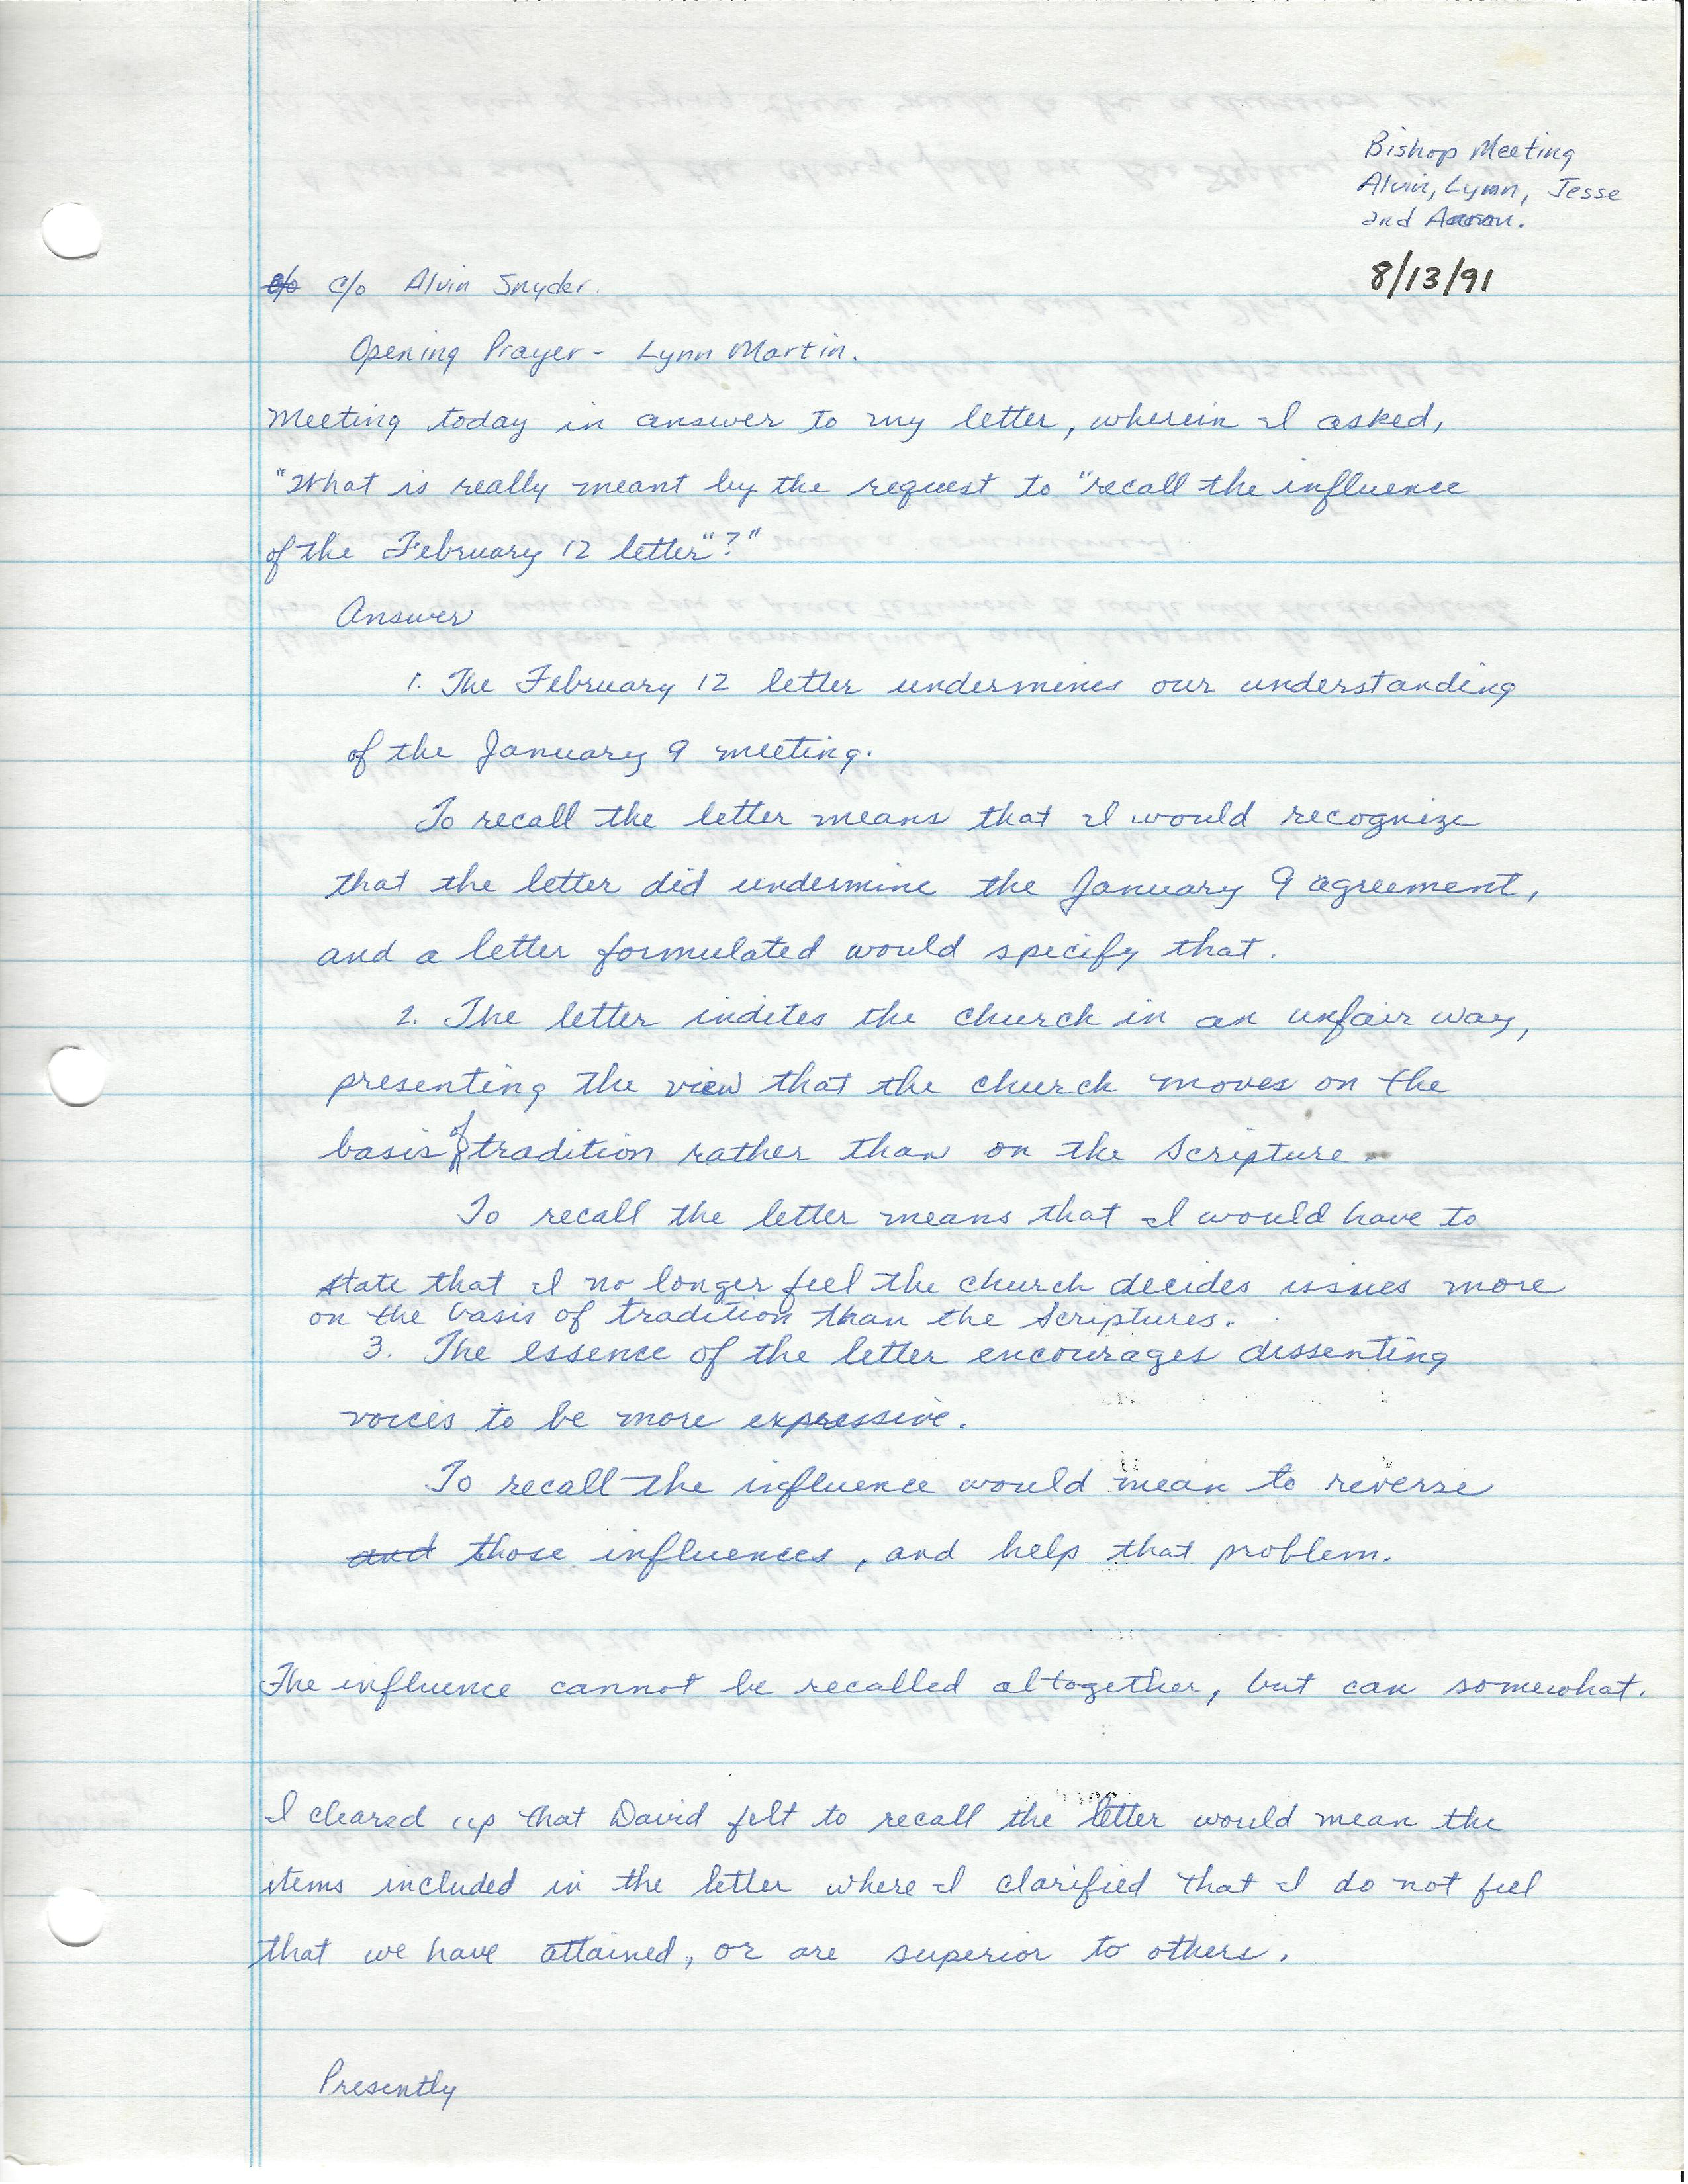 Bishop Meeting
Alvin, Lynn, Jesse
and Aaron.
8/13/91
c/o c/o Alvin Snyder.
Opening Prayer - Lynn Martin.
Meeting today in answer to my letter, wherein I asked,
"What is really meant by the request to "recall the influence
of the February 12 letter"?"
Answer
1. The February 12 letter undermines our understanding
of the January 9 meeting.
To recall the letter means that I would recognize
that the letter did undermine the January 9 agreement,
and a letter formulated would specify that.
2. The letter indites the church in an unfair way,
presenting the view that the church moves on the
basis of tradition rather than on the Scripture.
To recall the letter means that I would have to
state that I no longer feel the church decides issues more
on the basis of tradition than the Scriptures.
3. The essence of the letter encourages dissenting
voices to be more expressive.
To recall the influence would mean to reverse
and those influences, and help that problem.
The influence cannot be recalled altogether, but can somewhat.
I cleared up that David felt to recall the letter would mean the
items included in the letter where I clarified that I do not feel
that we have attained, or are superior to others.
Presently